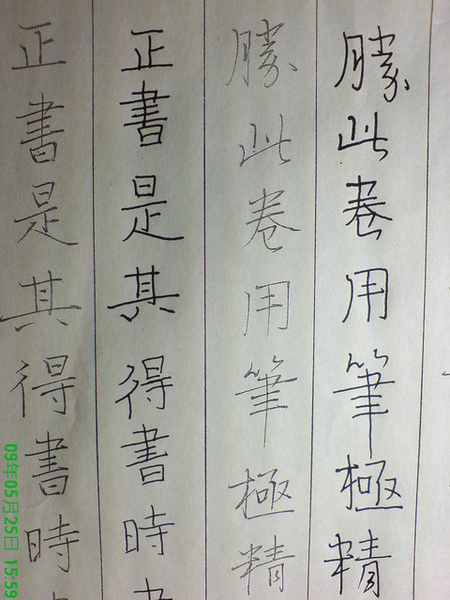 勝此卷用筆極精
勝此卷用筆極精
正書是其得書時
正書是其得書時
09年05月25日 15:59